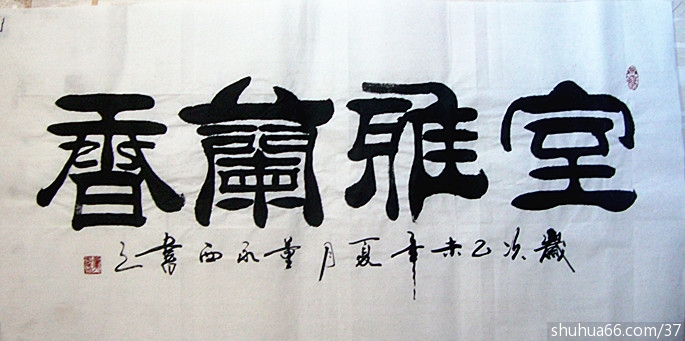 室雅蘭香
歲次乙未年夏月董永西書之
shuhua66.com/37